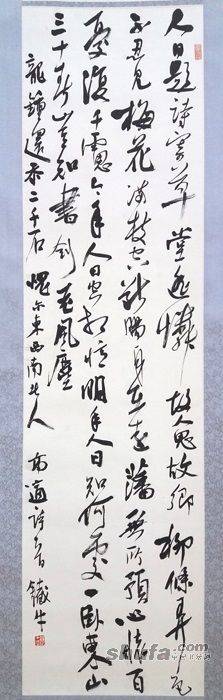 人日題詩寄草堂遙憐故人思故鄉柳條弄色
不忍見梅花滿枝空斷腸身在遠藩無所預心懷百
憂復千慮今年人日空相憶明年人日知何處一臥東山
三十春豈知書劍老風塵
龍鍾還忝二千石愧尔東西南北人 高適詩一首 鐵牛